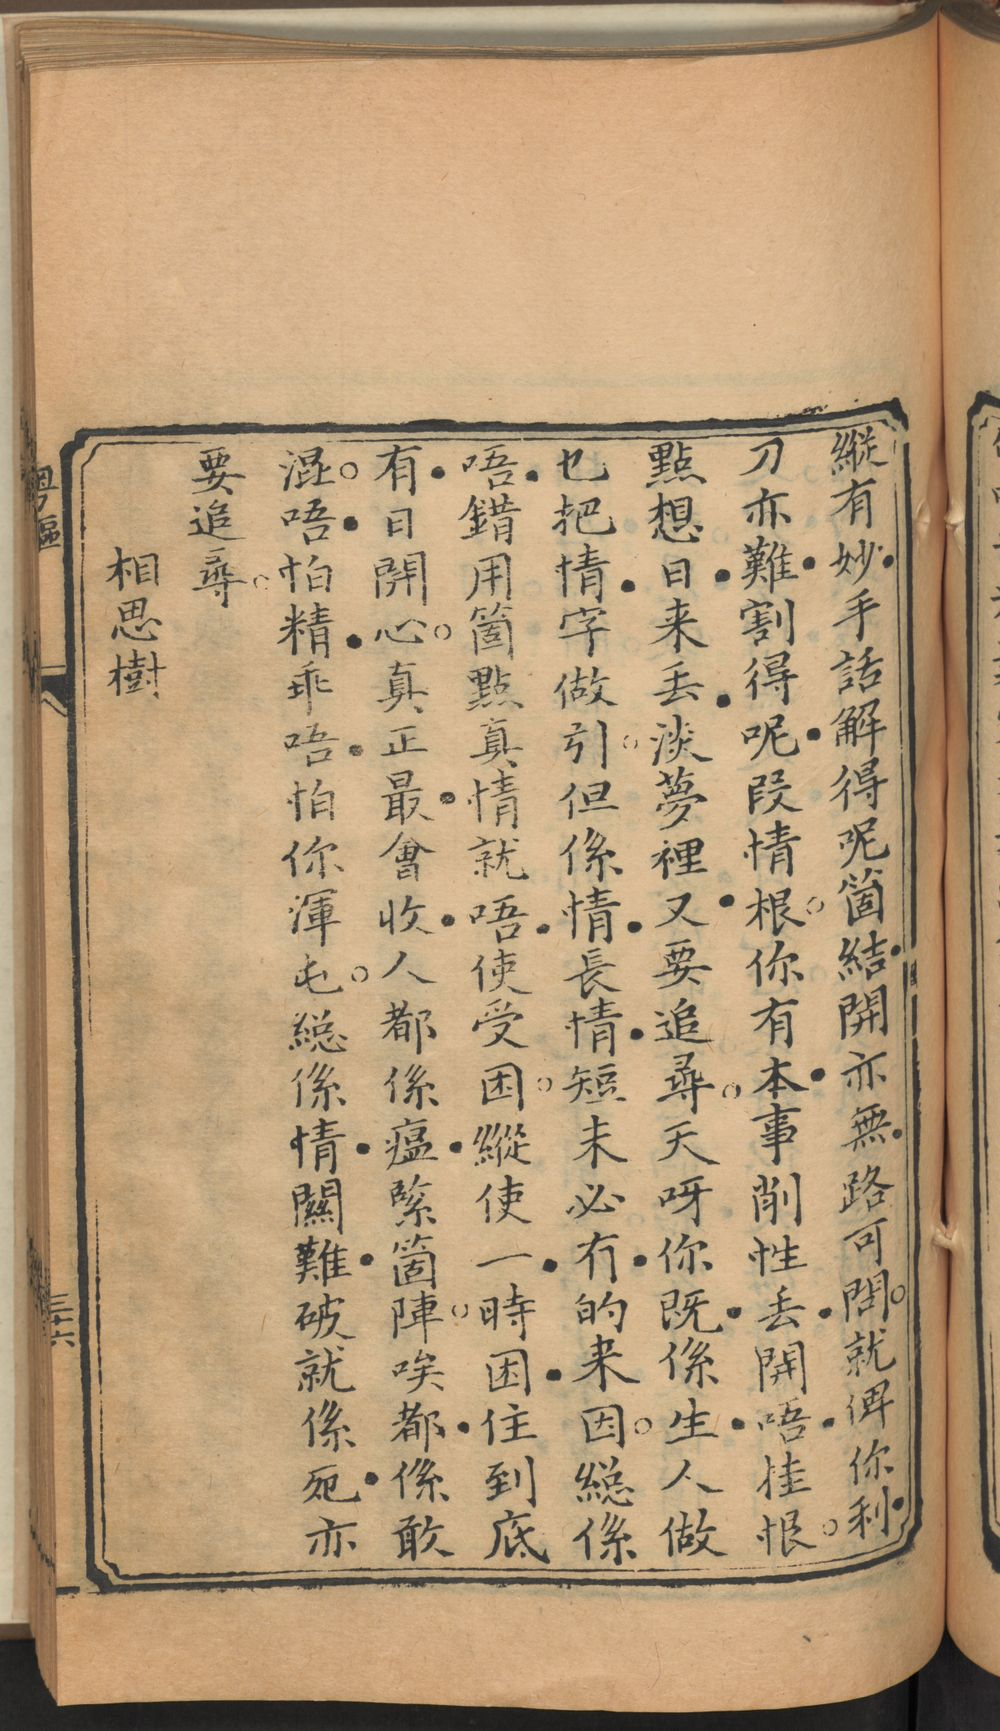 縱有妙手話解得呢箇結開亦無路可問就俾你利
刀亦難割得呢段情根你有本事削性丢開唔挂恨
點想日来丢淡夢裡又要追尋天呀你既係生人做
乜把情字做引但係情長情短未必冇的来因總係
唔錯用箇點真情就唔使受困縱使一時困住到底
有日開心真正最會收人都係瘟緊箇陣唉都係敢
混唔怕精乖唔怕你渾屯總係情關難破就係死亦
要追尋
相思樹
粵謳
三十六